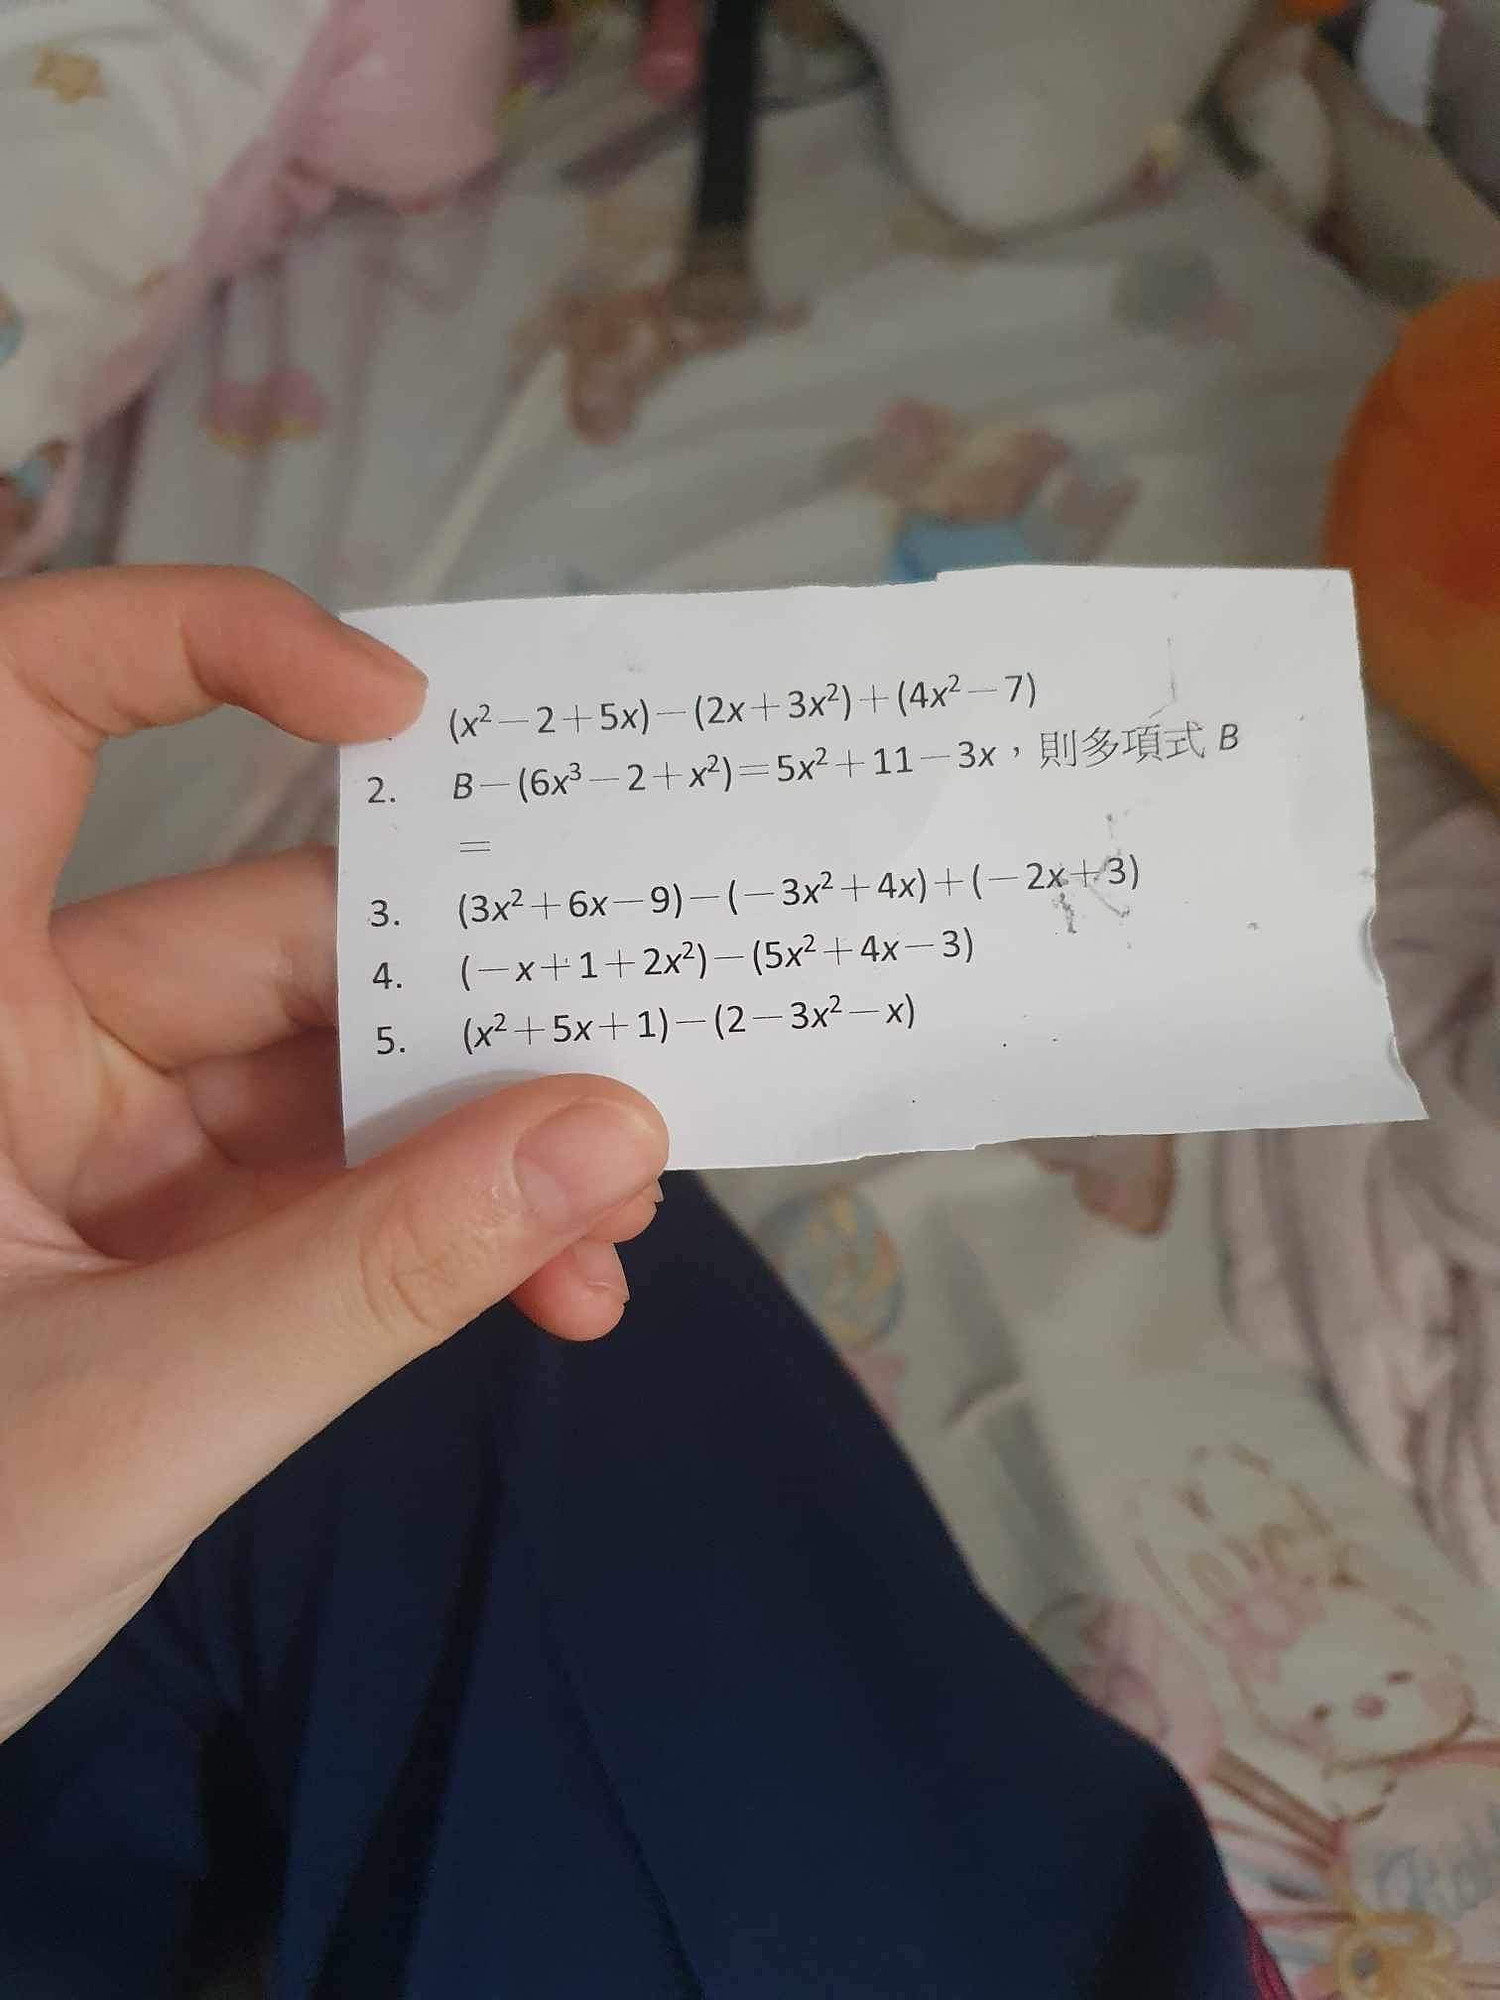 (x²－2＋5x)－(2x＋3x²)＋(4x²－7)
2. B－(6x³－2＋x²)＝5x²＋11－3x，則多項式 B
＝
3. (3x²＋6x－9)－(－3x²＋4x)＋(－2x＋3)
4. (－x＋1＋2x²)－(5x²＋4x－3)
5. (x²＋5x＋1)－(2－3x²－x)